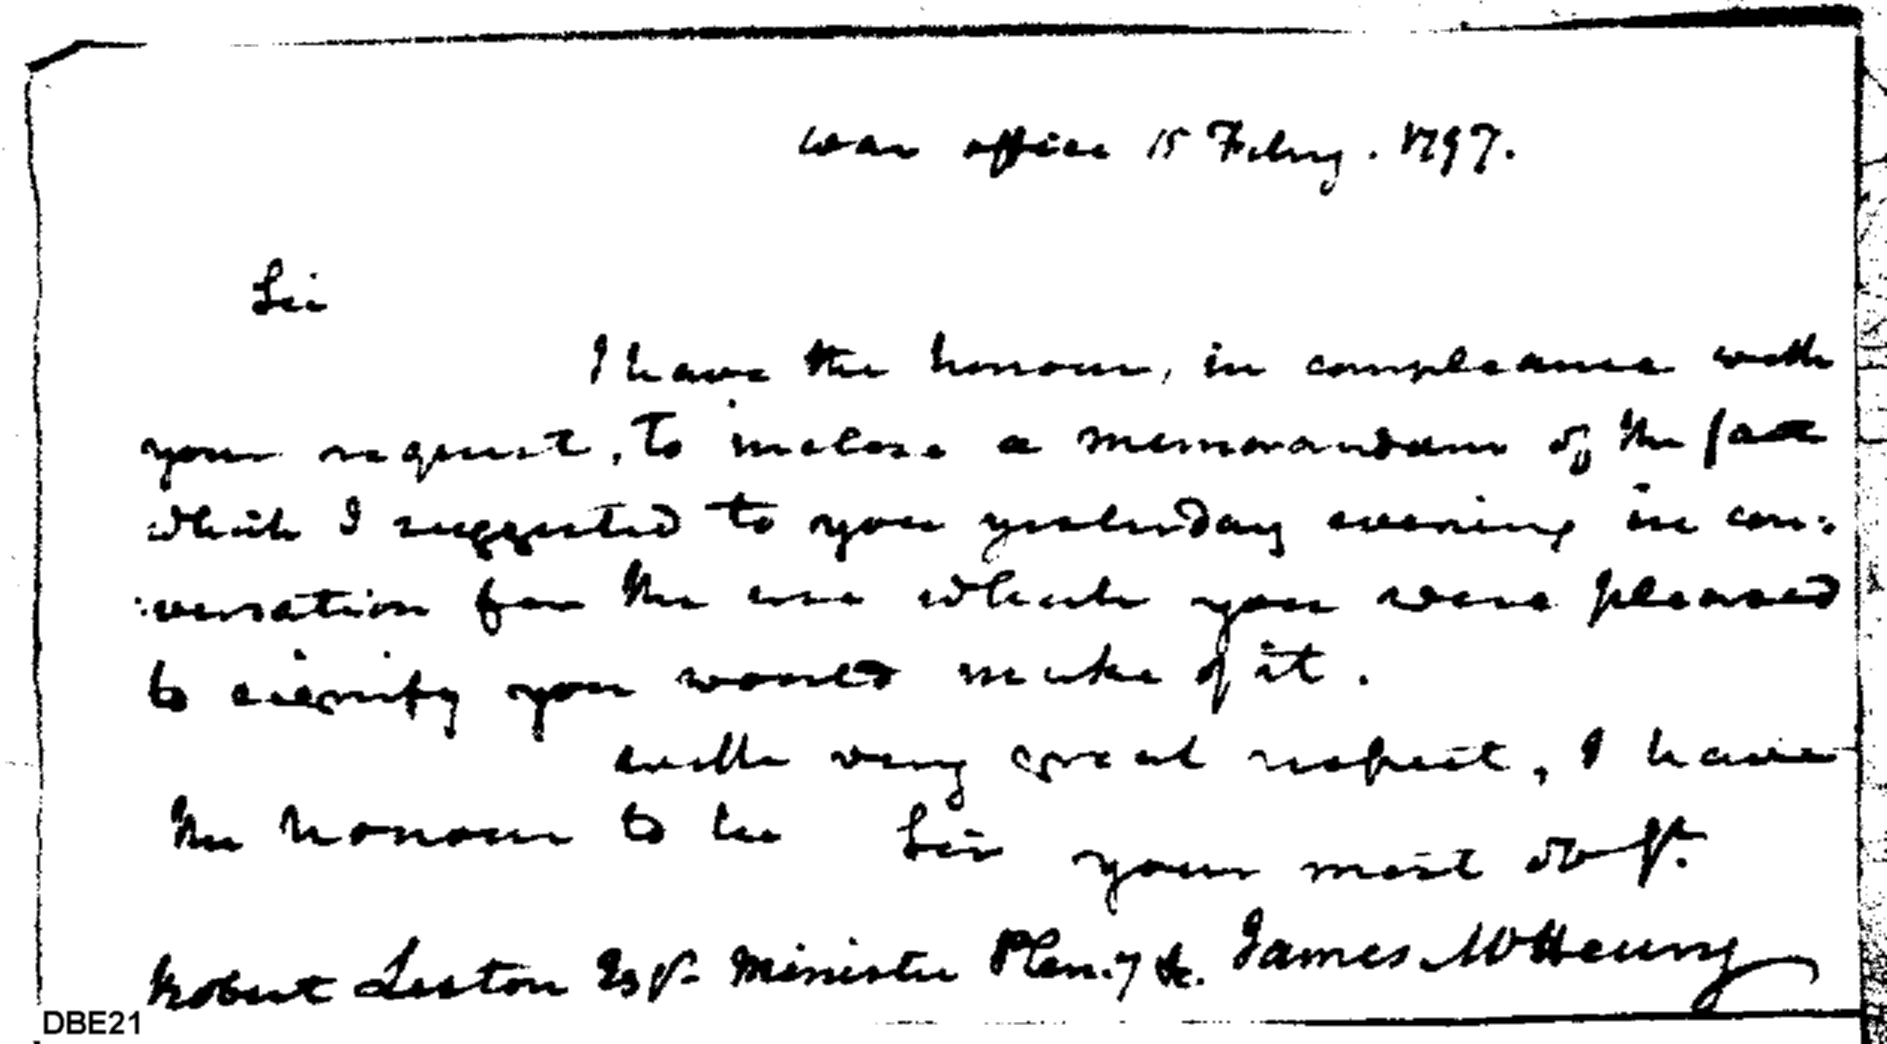 War office 15 Febry. 1797.
Sir
I have the honour, in compleance with
your request, to inclose a memorandum of the facts
which I suggested to you yesterday evening in con:
:versation for the use which you were pleased
to signify you would make of it.
with very great respect, I have
the honour to be Sir your most obt.
Robert Liston Esqr. Minister Plen.y &c. James McHenry
DBE21